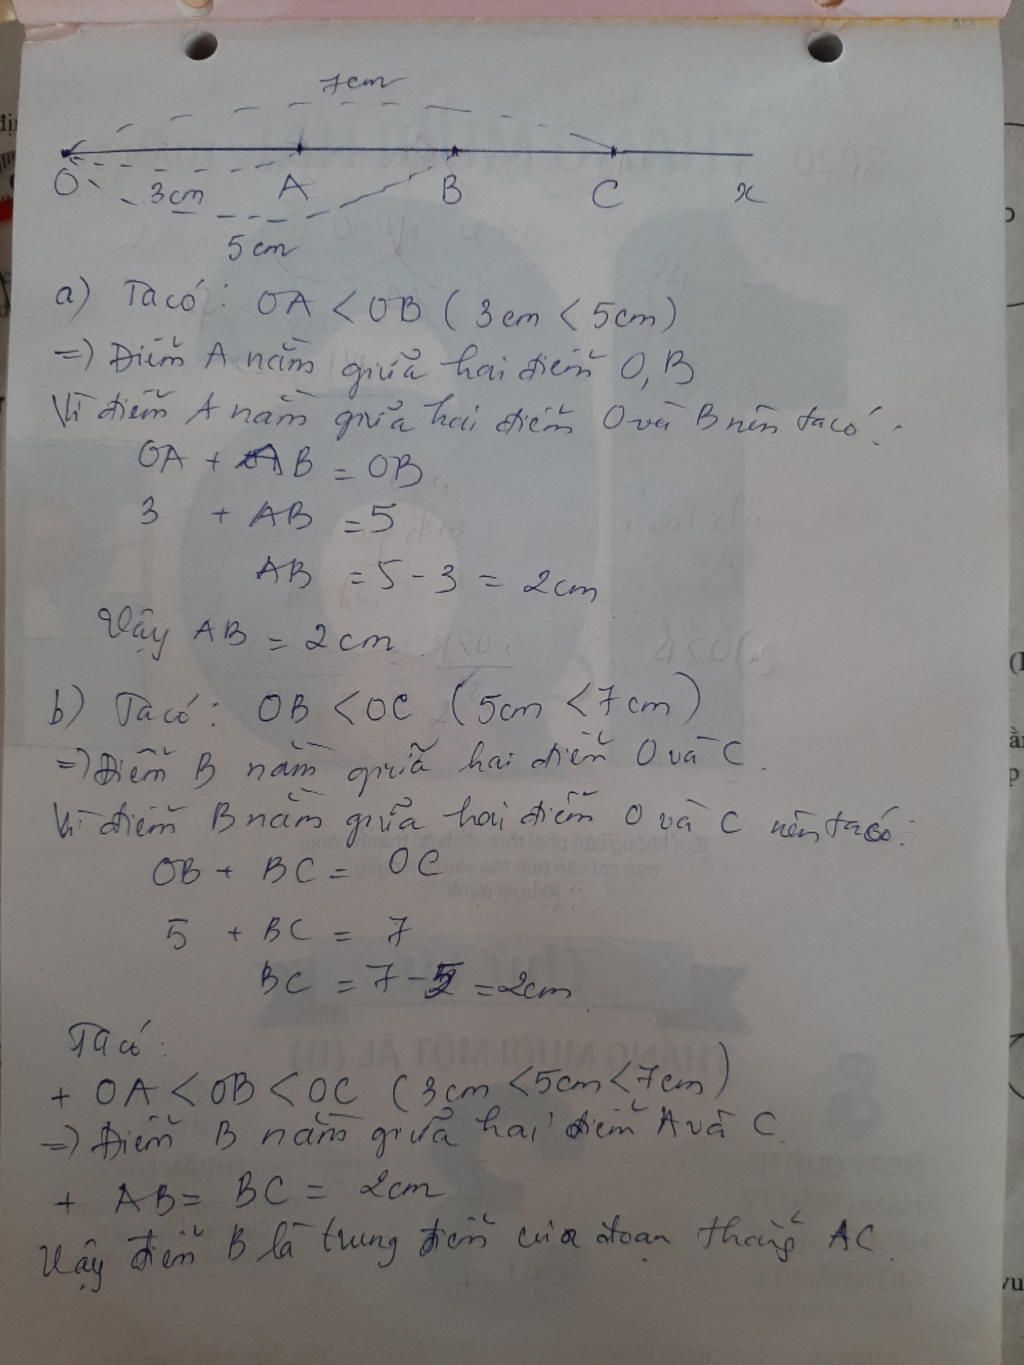 7cm
O
3cm
A
B
C
x
5cm
a) Ta có: OA < OB (3cm < 5cm)
=) Điểm A nằm giữa hai điểm O, B
Vì điểm A nằm giữa hai điểm O và B nên ta có:
OA + AB = OB
3 + AB = 5
AB = 5 - 3 = 2cm
Vậy AB = 2cm
b) Ta có: OB < OC (5cm < 7cm)
=) Điểm B nằm giữa hai điểm O và C.
Vì điểm B nằm giữa hai điểm O và C nên ta có:
OB + BC = OC
5 + BC = 7
BC = 7 - 5 = 2cm
Ta có:
+ OA < OB < OC (3cm < 5cm < 7cm)
=) Điểm B nằm giữa hai điểm A và C.
+ AB = BC = 2cm
Vậy điểm B là trung điểm của đoạn thẳng AC.